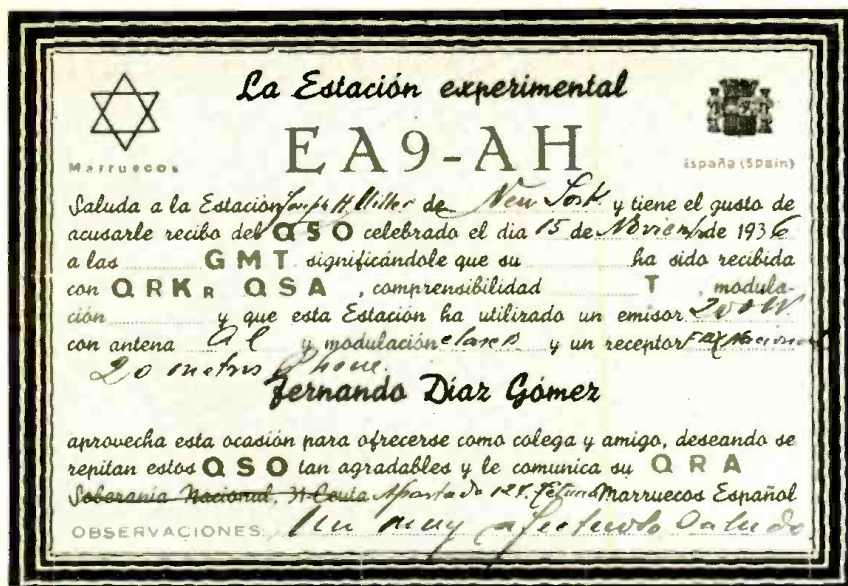 La Estación experimental
EA9-AH
Marruecos
España (Spain)
Saluda a la Estación Joseph H. Miller de New York y tiene el gusto de
acusarle recibo del QSO celebrado el dia 15 de Noviembre de 1936
a las GMT significándole que su ha sido recibida
con QRKR QSA, comprensibilidad T, modula-
ción y que esta Estación ha utilizado un emisor 200W
con antena y modulación clase B y un receptor Nacional
20 metros phone.
Fernando Díaz Gómez
aprovecha esta ocasión para ofrecerse como colega y amigo, deseando se
repitan estos QSO tan agradables y le comunica su QRA
Soberanía Nacional, Ceuta Apartado 124. Tetuan Marruecos Español
OBSERVACIONES: Un muy afectuoso Saludo